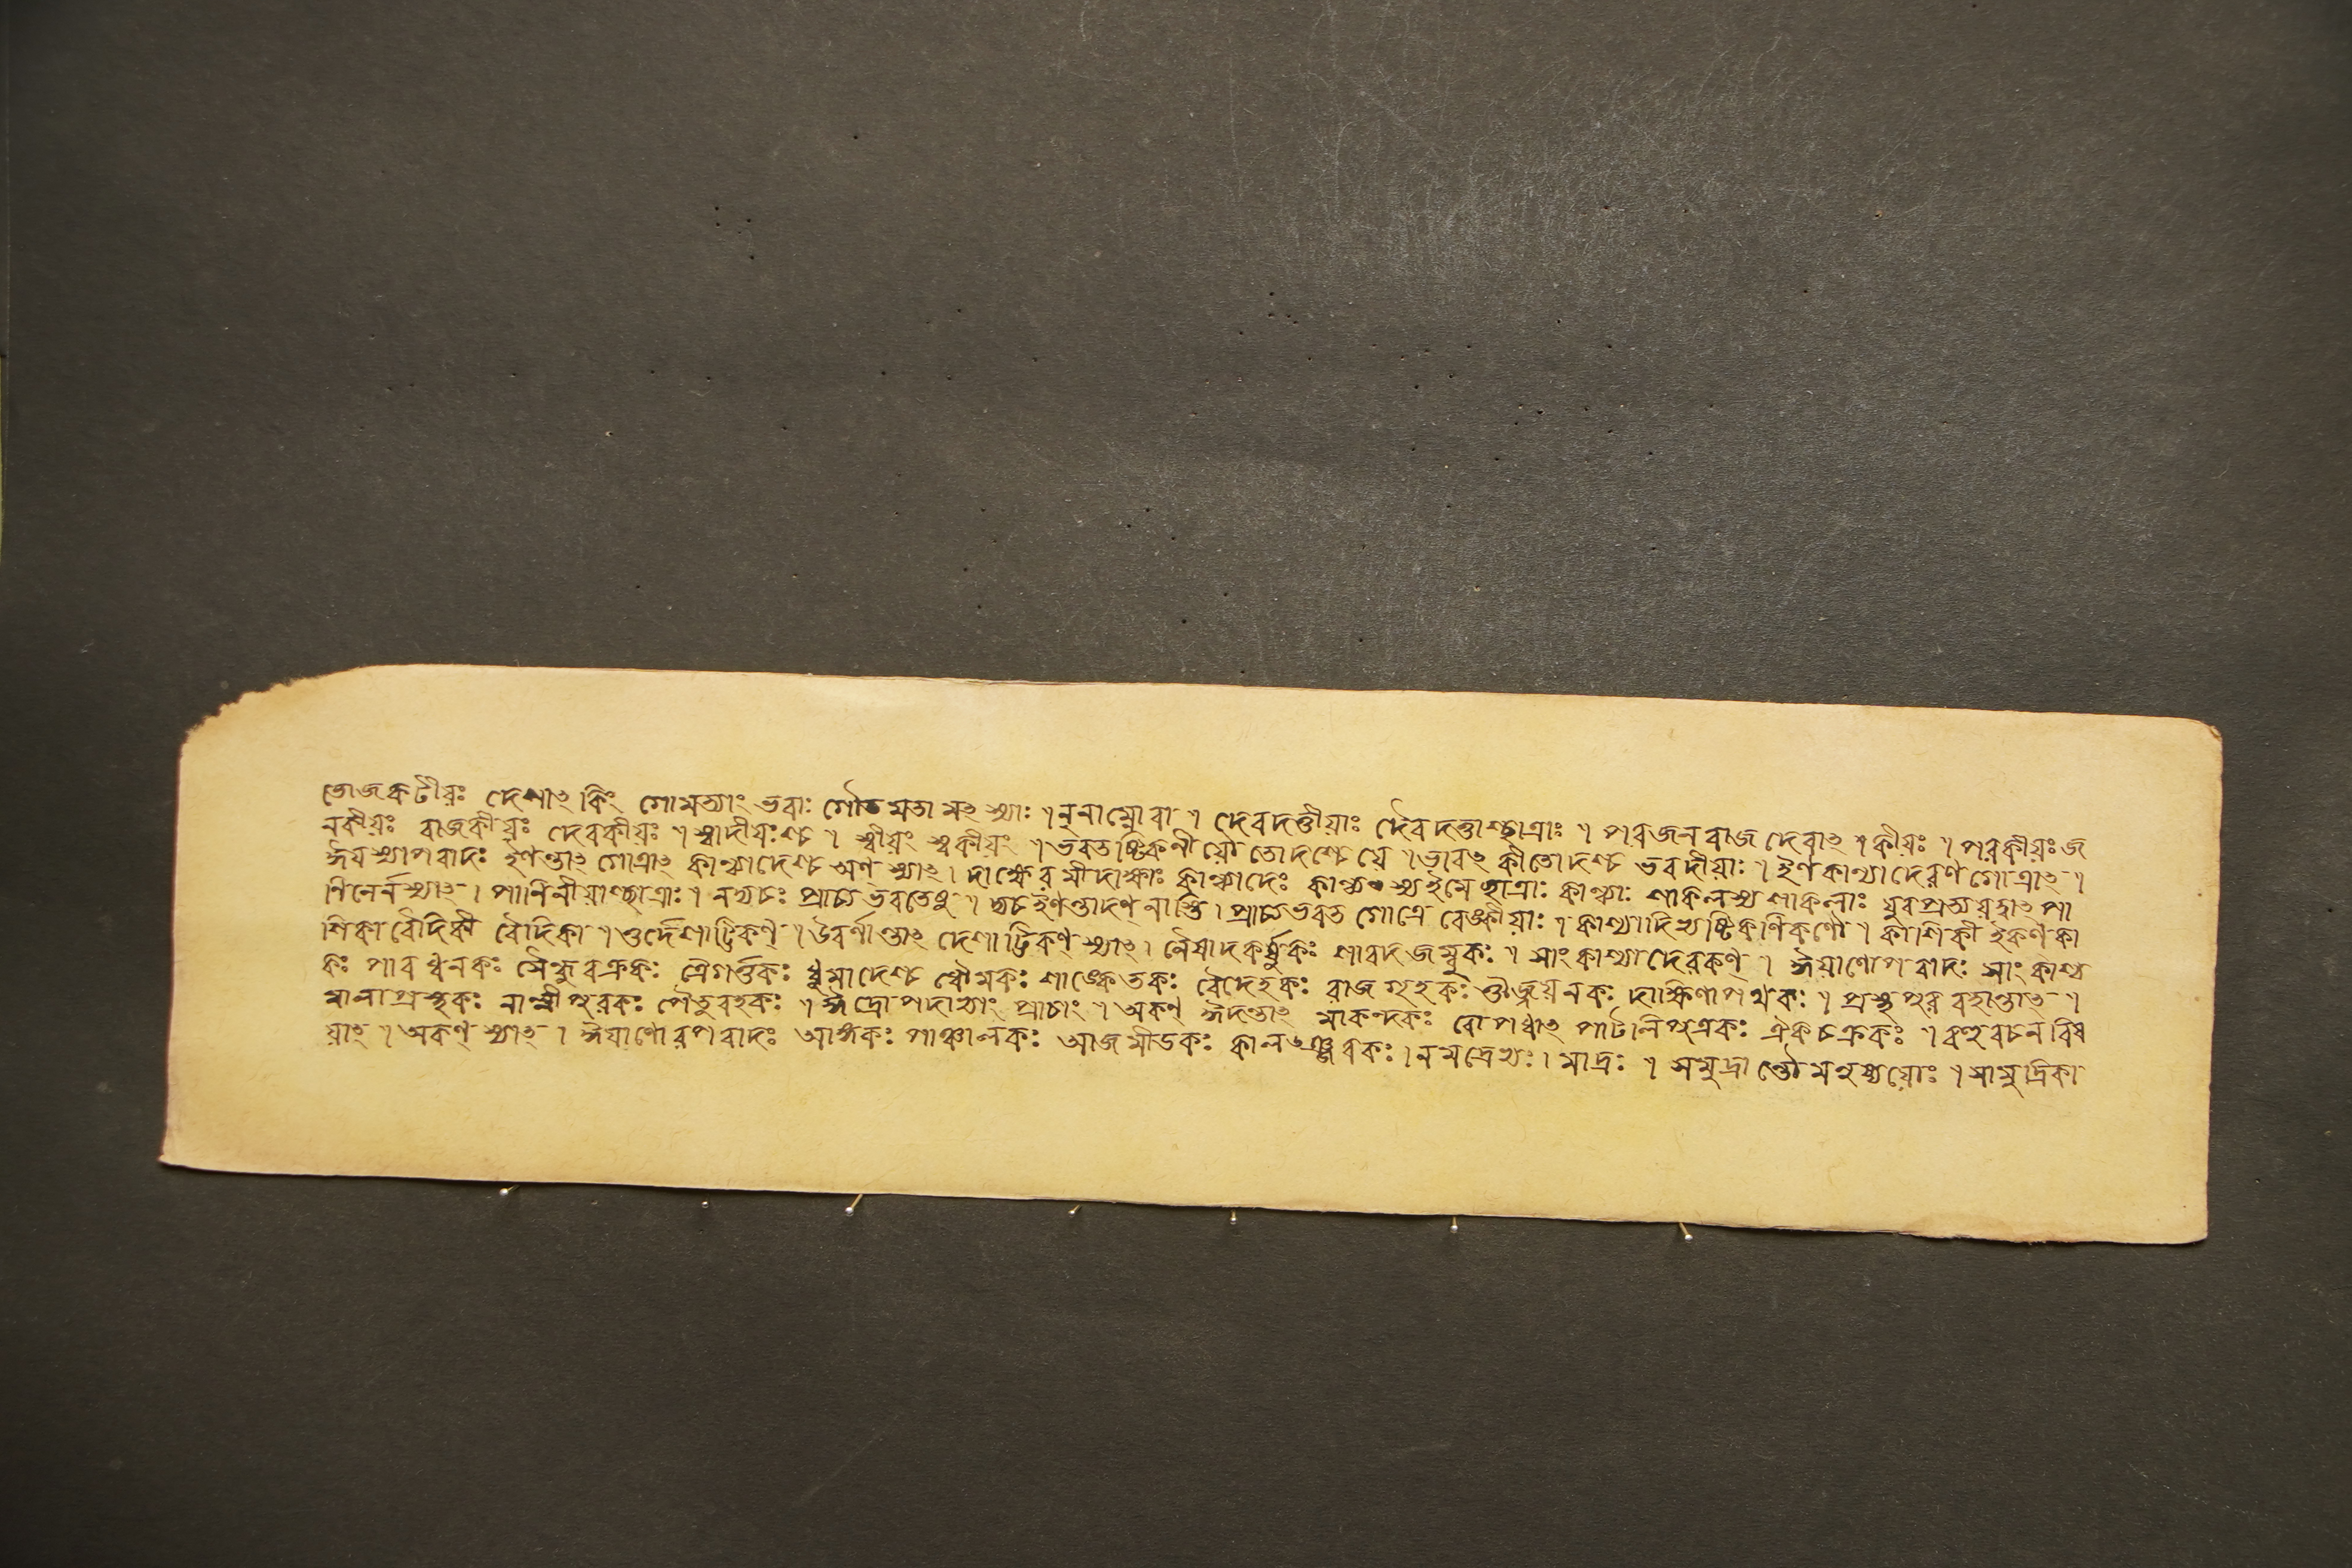 ভোজকটীয়ঃ দেশাৎ কিং গোমত্যাং ভবাঃ গৌতমতা মৎস্যাঃ । নৃনাম্নোবা । দেবদত্তীয়াঃ দৈবদত্তাশ্ছাত্রাঃ । পরজনরাজ দেবাৎ কীয়ঃ । পরকীয়ঃ জ
নকীয়ঃ রাজকীয়ঃ দেবকীয়ঃ । স্বাদীয়ঃশ্চ । স্বীয়ং স্বকীয়ং । ভবতষ্টিকনীয়ৌ তোদশ্চেয়ে । ভাবৎ কীতোদশ্চ ভবদীয়াঃ । ইণকাণ্বাদেরণ গোত্রাৎ ।
ঈয়স্যাপবাদঃ ইণন্তাৎ গোত্রাৎ কাণ্বাদেশ্চ অণ স্যাৎ । দাক্ষেরমীদাক্ষাঃ কাণ্বাদেঃ কাণ্বস্য ইমে ছাত্রাঃ কাণ্বাঃ শাকলস্য শাকলাঃ যুবপ্রত্যয়ত্বাৎ পা
ণিনের্নস্যাৎ । পাণিনীয়াশ্ছাত্রাঃ । নদ্ব্যচঃ প্রাচ্যভরতেষু । দ্ব্যচইণন্তাদণ্ নাস্তি । প্রাচ্যভরত গোত্রে বেঙ্কীয়াঃ । কাশ্যাদিভ্যষ্টিকণিকণৌ । কাশিকী ইকণ কা
শিকা বৈদিকী বৈদিকা । ওর্দেশাট্টিকণ্ । উবর্ণান্তাৎ দেশাট্টিকণ্ স্যাৎ । নৈষাদকর্ষুকঃ শাবদজম্বুকঃ । সাংকাশ্যাদেরকণ্ । ঈয়াণোপবাদঃ সাংকাশ্য
কঃ পারধ্বনকঃ সৈন্ধুবক্রকঃ ত্রৈগর্ত্তকঃ ধুমাদেশ্চ ধৌমকঃ শাঙ্কেতকঃ বৈদেহকঃ রাজগৃহকঃ ঔজ্জয়নকঃ দাক্ষিণাপথকঃ । প্রস্থপুর বহান্তাৎ ।
মালাপ্রস্থকঃ নান্দীপুরকঃ পৈভুবহকঃ । ঈদ্রোপদাভ্যাং প্রাচাং । অকণ্ ঈদন্তাৎ মাকন্দকঃ রোপধাৎ পাটলিপুত্রকঃ ঐকচক্রকঃ । বহুবচন বিষ
য়াৎ । অকণ্ স্যাৎ । ঈয়াণোরপবাদঃ আঙ্গকঃ পাঞ্চালকঃ আজমীডকঃ কাল । নমদ্রেভ্যঃ । মাদ্রঃ । সমুদ্রান্নৌমনুষ্যয়োঃ । সামুদ্রিকা